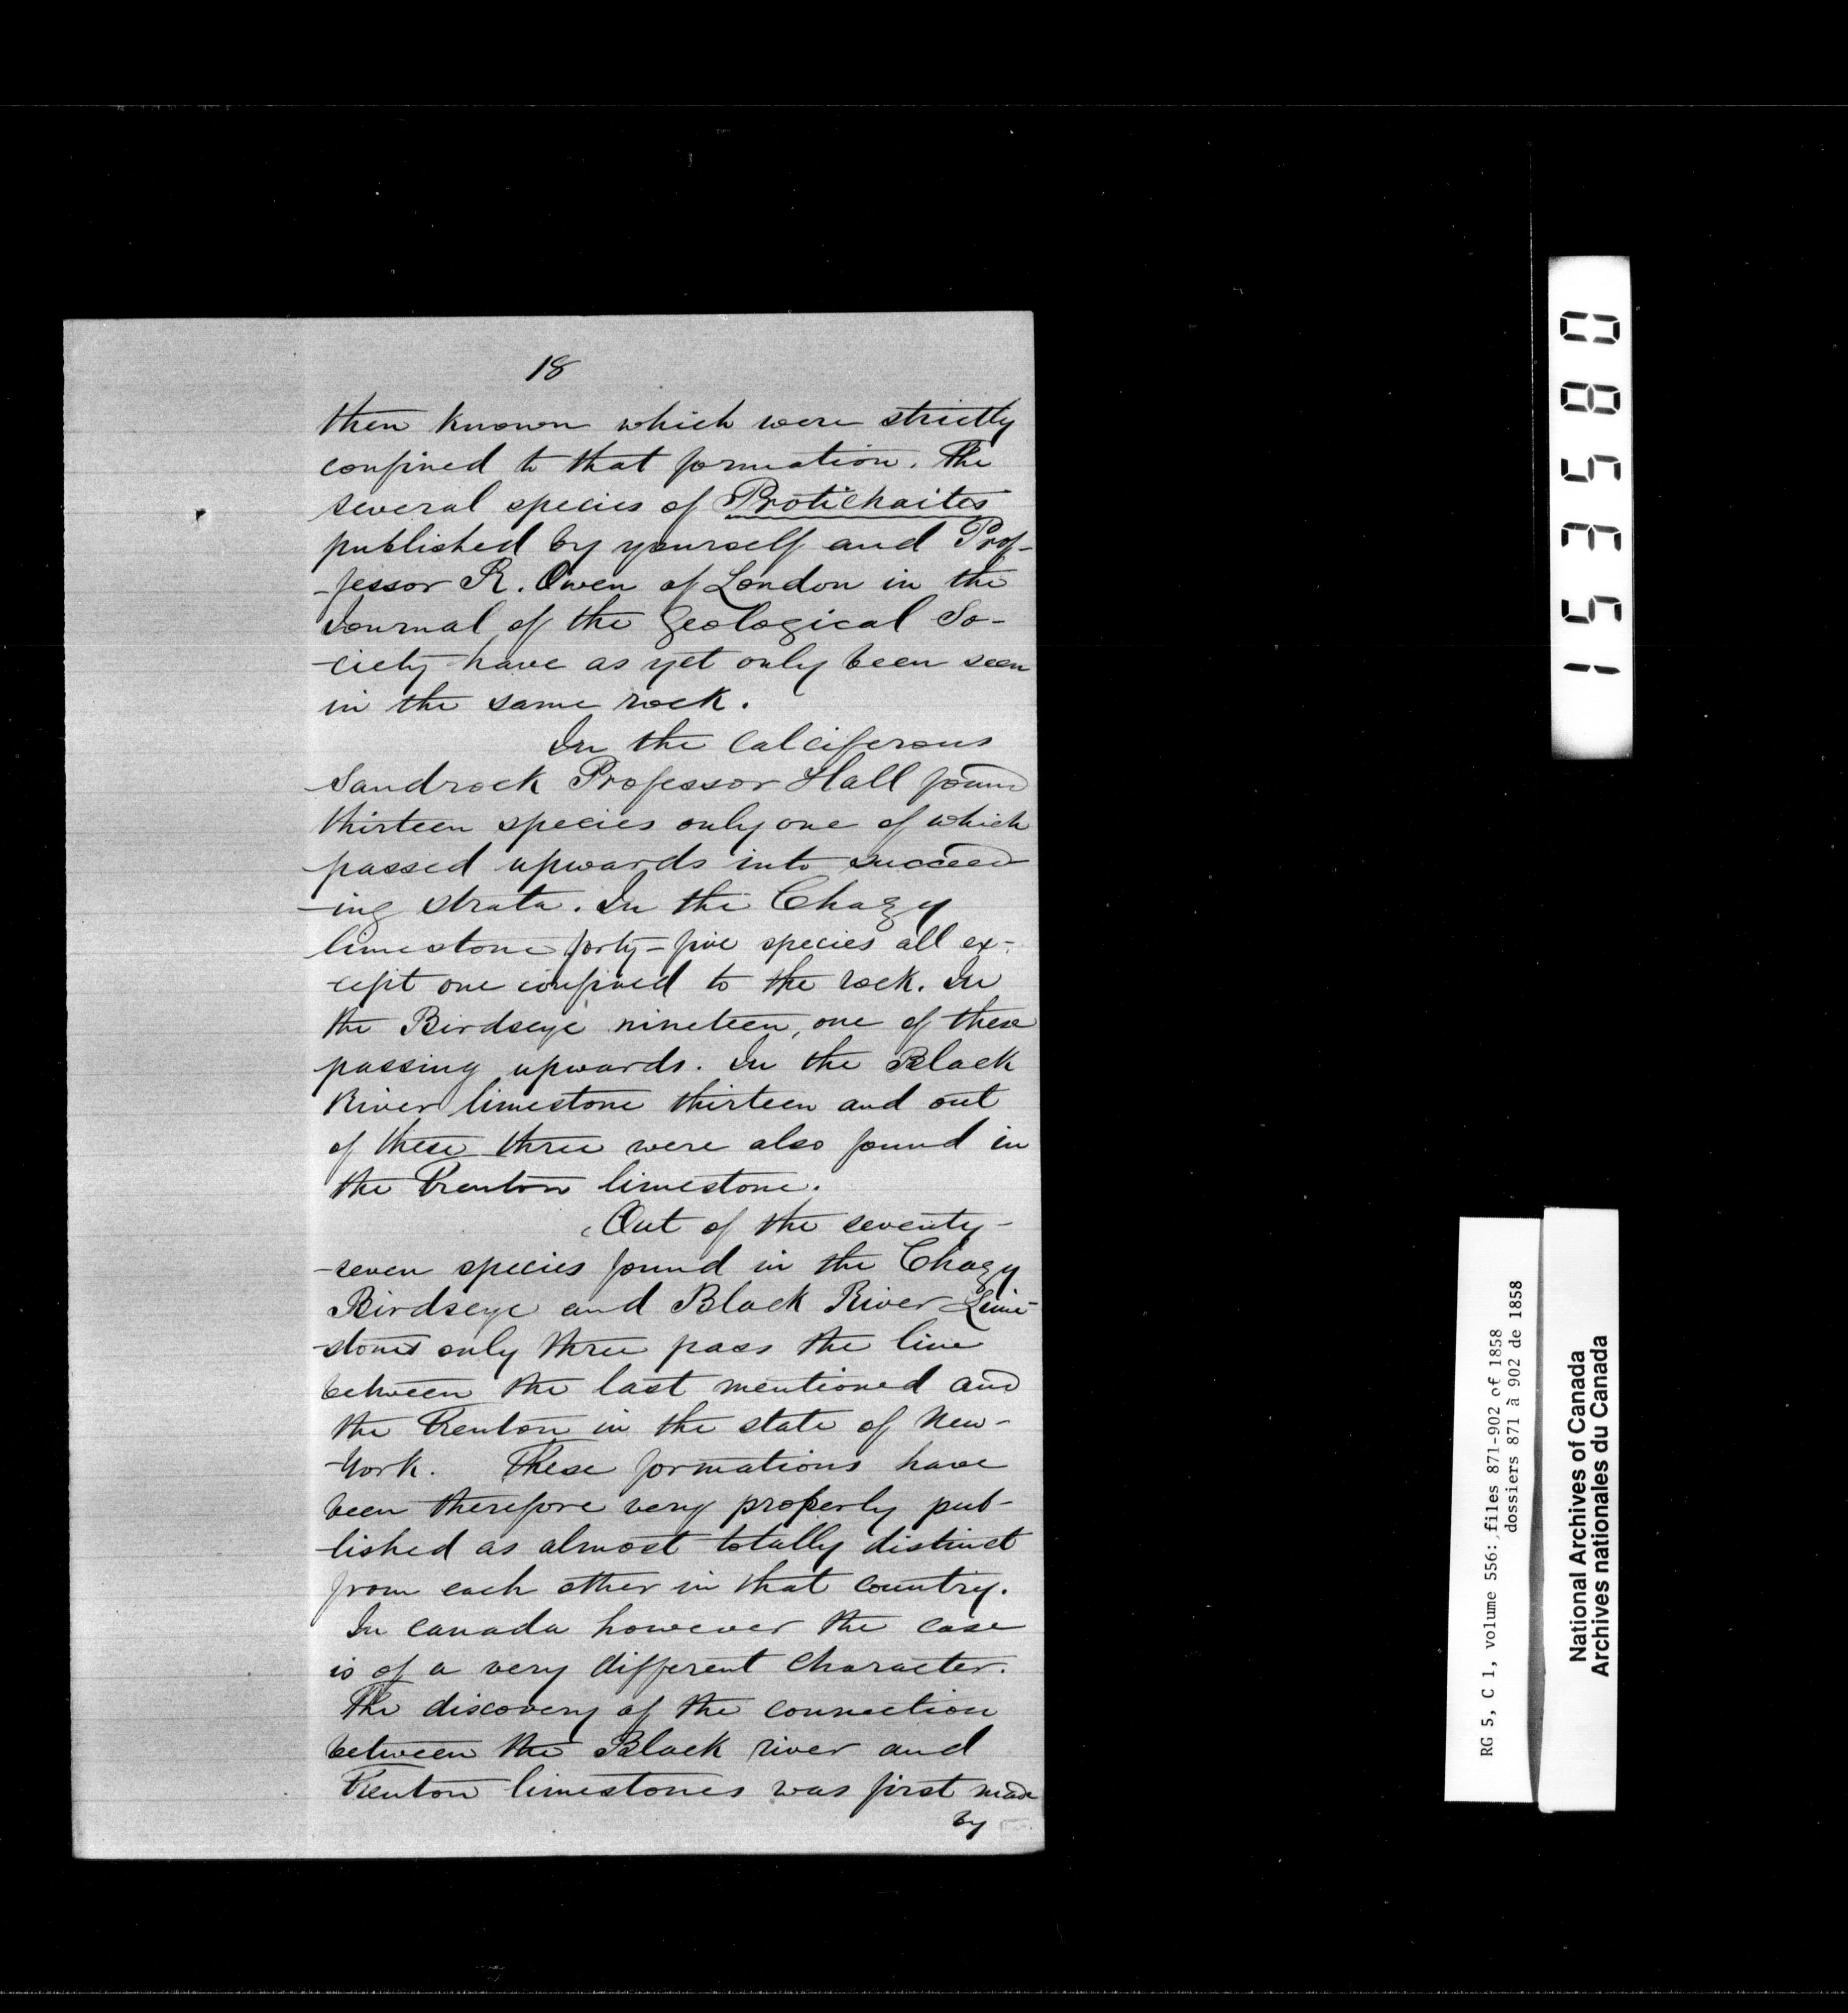 18
then known which were strictly
confined to that formation. The
several species of Protichaites
published by yourself and Prof-
-fessor R. Owen of London in the
Journal of the Geological So-
-ciety have as yet only been seen
in the same rock.
In the Calciferous
Sandrock Professor Hall found
thirteen species only one of which
passed upwards into succeed
-ing strata. In the Chazy
limestone forty-five species all ex-
-cept one confined to the rock. In
the Birdseye nineteen, one of these
passing upwards. In the Black
River limestone thirteen and out
of these three were also found in
the Trenton limestone.
Out of the seventy-
-seven species found in the Chazy
Birdseye and Black River Lime-
-stones only three pass the line
between the last mentioned and
the Trenton in the state of New-
-York. These formations have
been therefore very properly pub-
-lished as almost totally distinct
from each other in that country.
In Canada however the case
is of a very different character.
The discovery of the connection
between the Black river and
Trenton limestones was first made
by
153580
RG 5, C 1, volume 556: files 871-902 of 1858
dossiers 871 à 902 de 1858
National Archives of Canada
Archives nationales du Canada